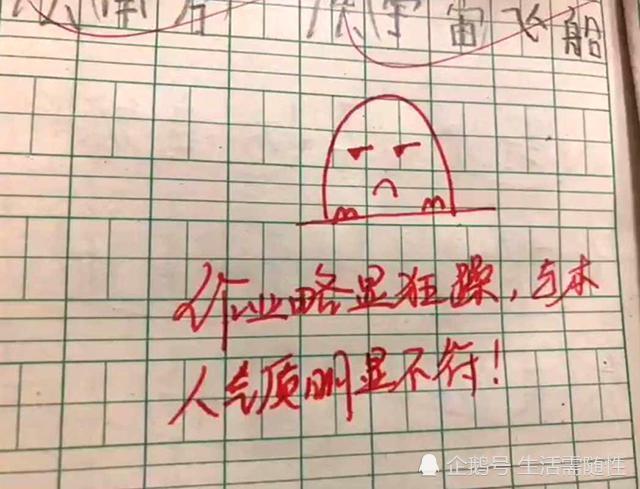 宇宙飞船
作业略显狂躁，与本
人气质明显不符！
企鹅号 生活需随性